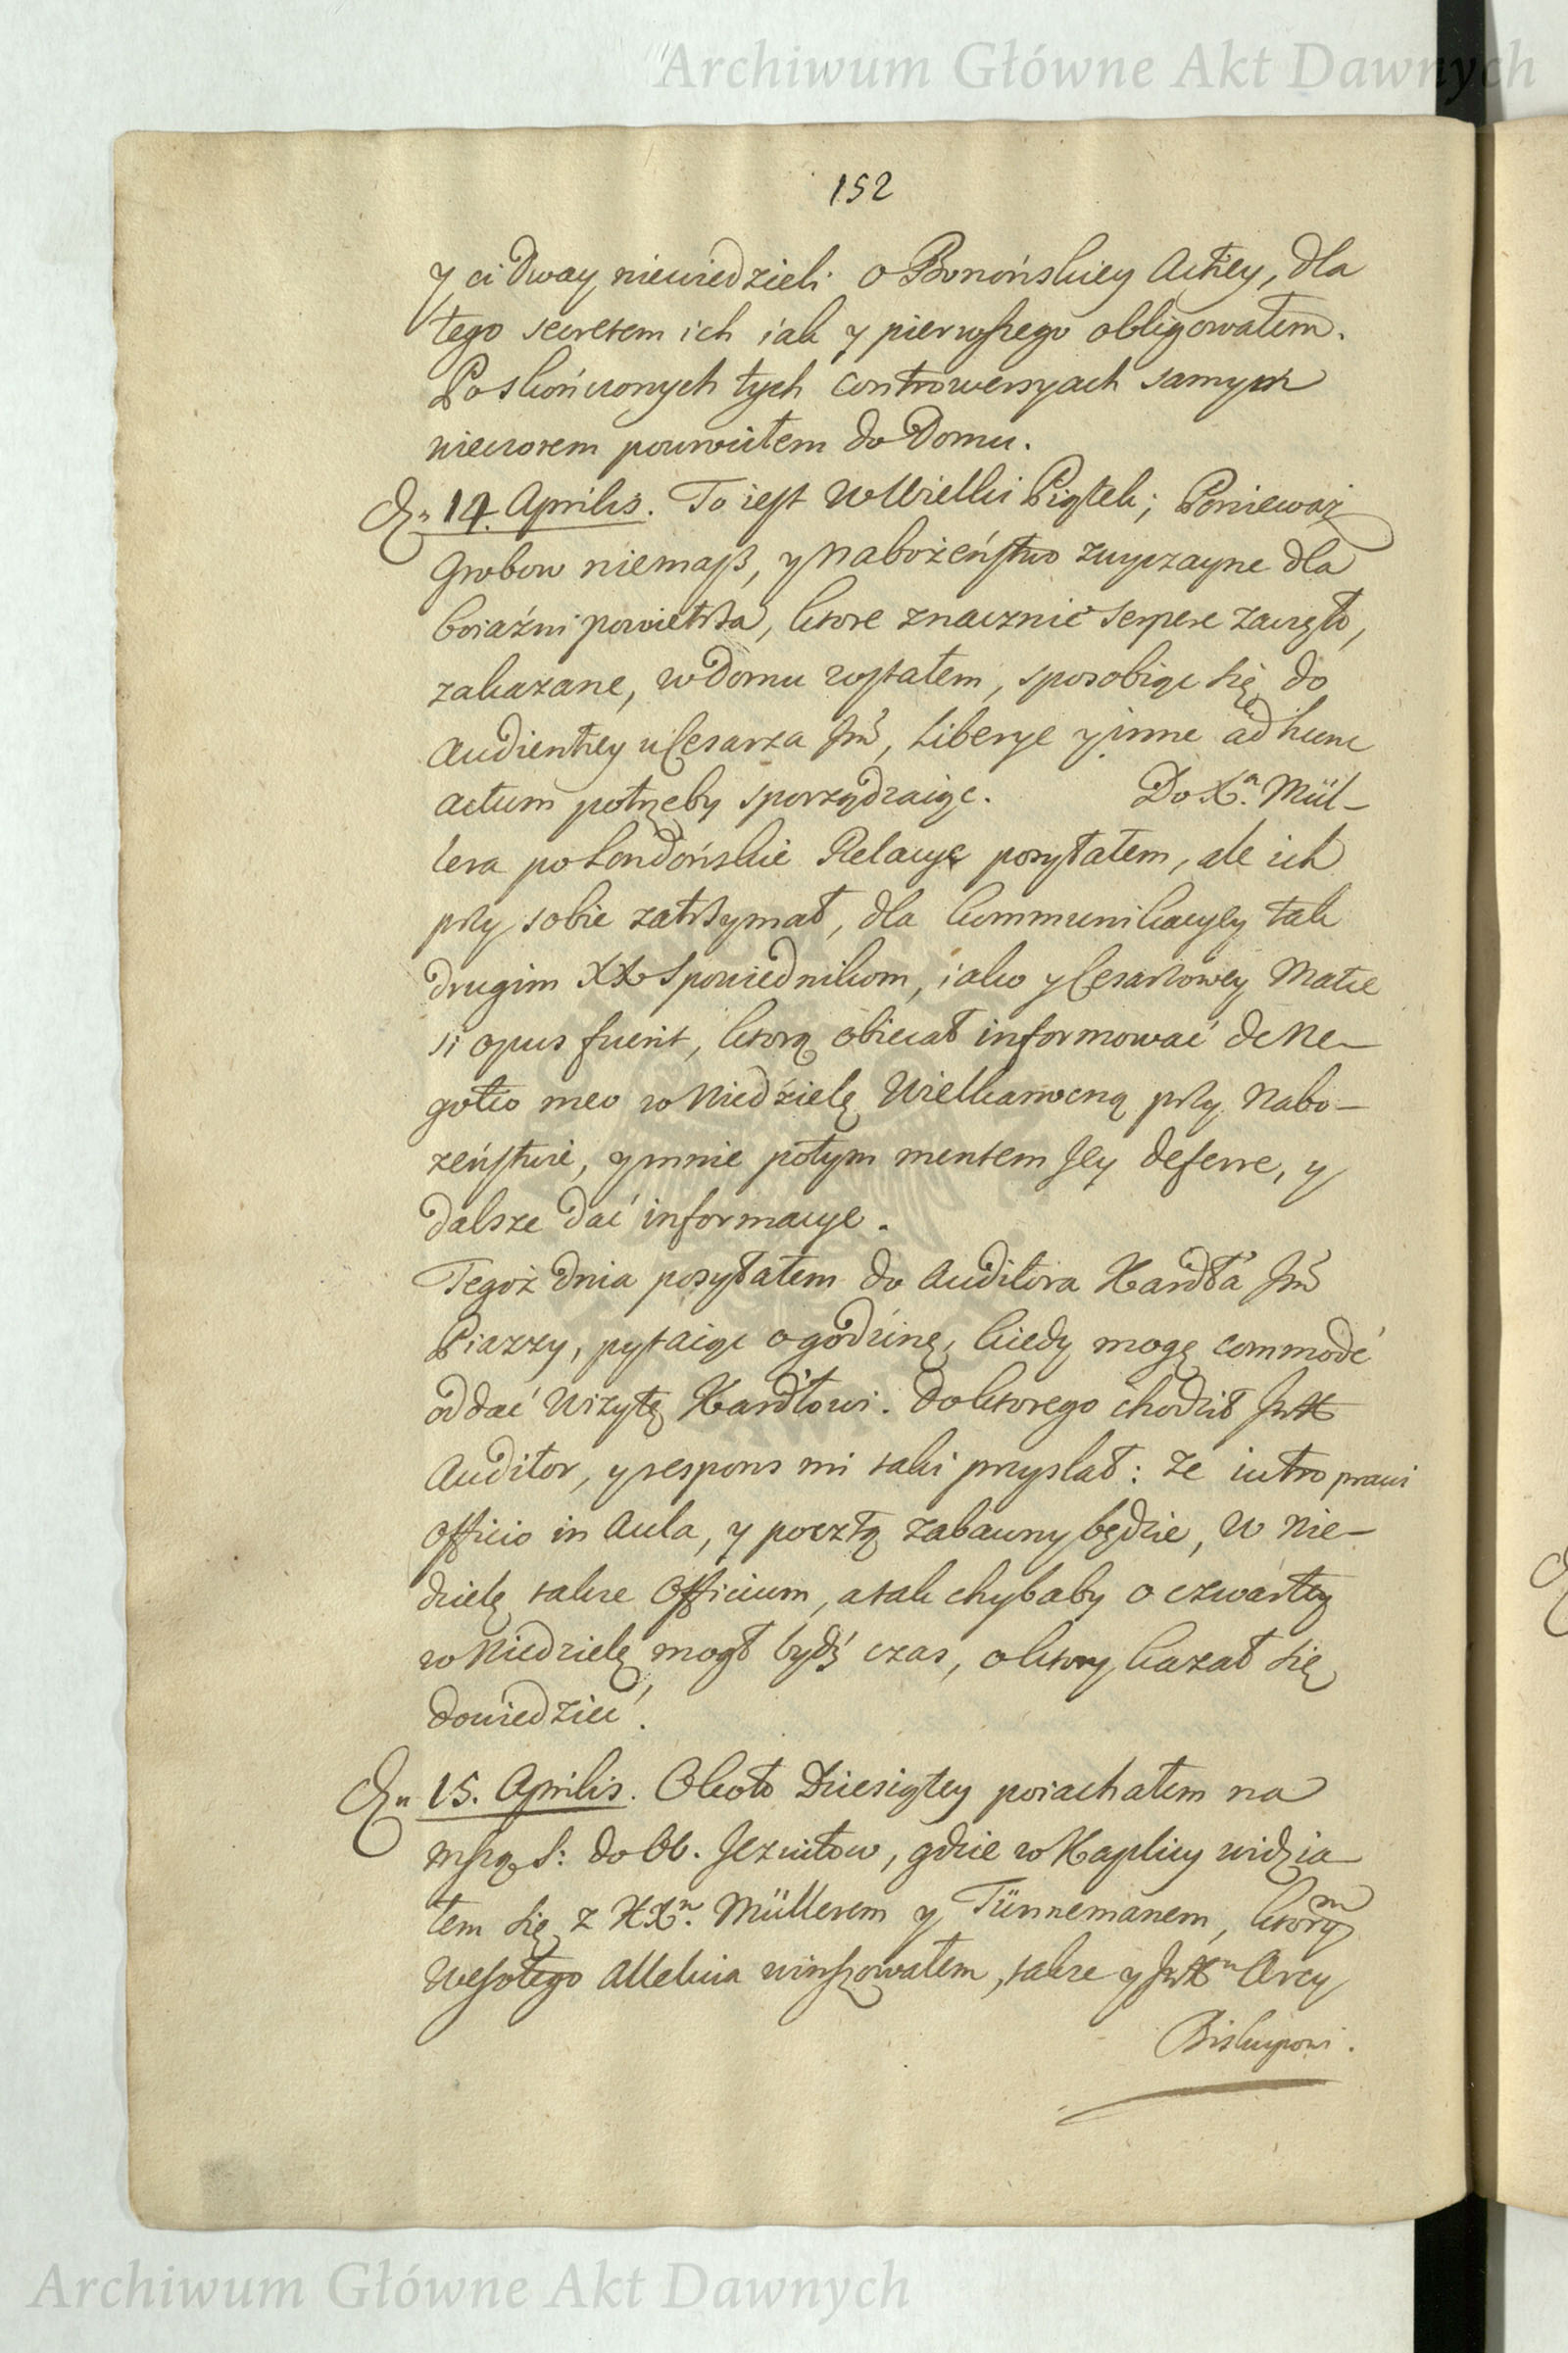 Archiwum Główne Akt Dawnych
152
y ci dway niewiedzieli o Bonońskiey Actiey, dla
tego secretem ich iak y pierwszego obligowałem.
Po skończonych tych controwersyach samym
wieczorem powrociłem do Domu.
14. Aprilis. To iest w Wielki Piątek; Ponieważ
Grobow niemasz, y Nabożeństwo zwyczayne dla
boiaźni powietrza, ktore znacznie serpere zaczęło,
zakazane, w Domu zostałem, sposobiąc się do
Audientiey u Cesarza Jmć, Liberye y inne ad hunc
actum potrzeby sporządzaiąc. Do Xa. Mül-
lera po Londońskie Relacye posyłałem, ale ich
przy sobie zatrzymał, dla kommunikacyey tak
drugim XX Spowiednikom, iako y Cesarzowey Matce
si opus fuerit, ktorą obiecał informować de Ne-
gotio meo w Niedzielę Wielkanocną przy Nabo-
żeństwie, y mnie potym mentem Jey deferre, y
dalsze dać informacye.
Tegoż dnia posyłałem do Auditora Kardła Jmć
Piazzy, pytaiąc o godzinę, kiedy mogę commodè
oddać wizytę Kardłowi. Do ktorego chodził
Auditor, y respons mi taki przysłał: że iutro prawi
officio in Aula, y pocztą zabawny będzie, w Nie-
dzielę także Officium, a tak chybaby o czwartey
w Niedzielę mogł bydź czas, o ktory kazał się
dowiedzieć.
15. Aprilis. Około Dziesiątey poiachałem na
mszą S: do OO. Jezuitow, gdzie w Kaplicy widzia-
łem się z XXn. Müllerem y Tünnemanem, ktorym
wesołego Alleluia winszowałem, także y Arcy
Biskupowi.
Archiwum Główne Akt Dawnych